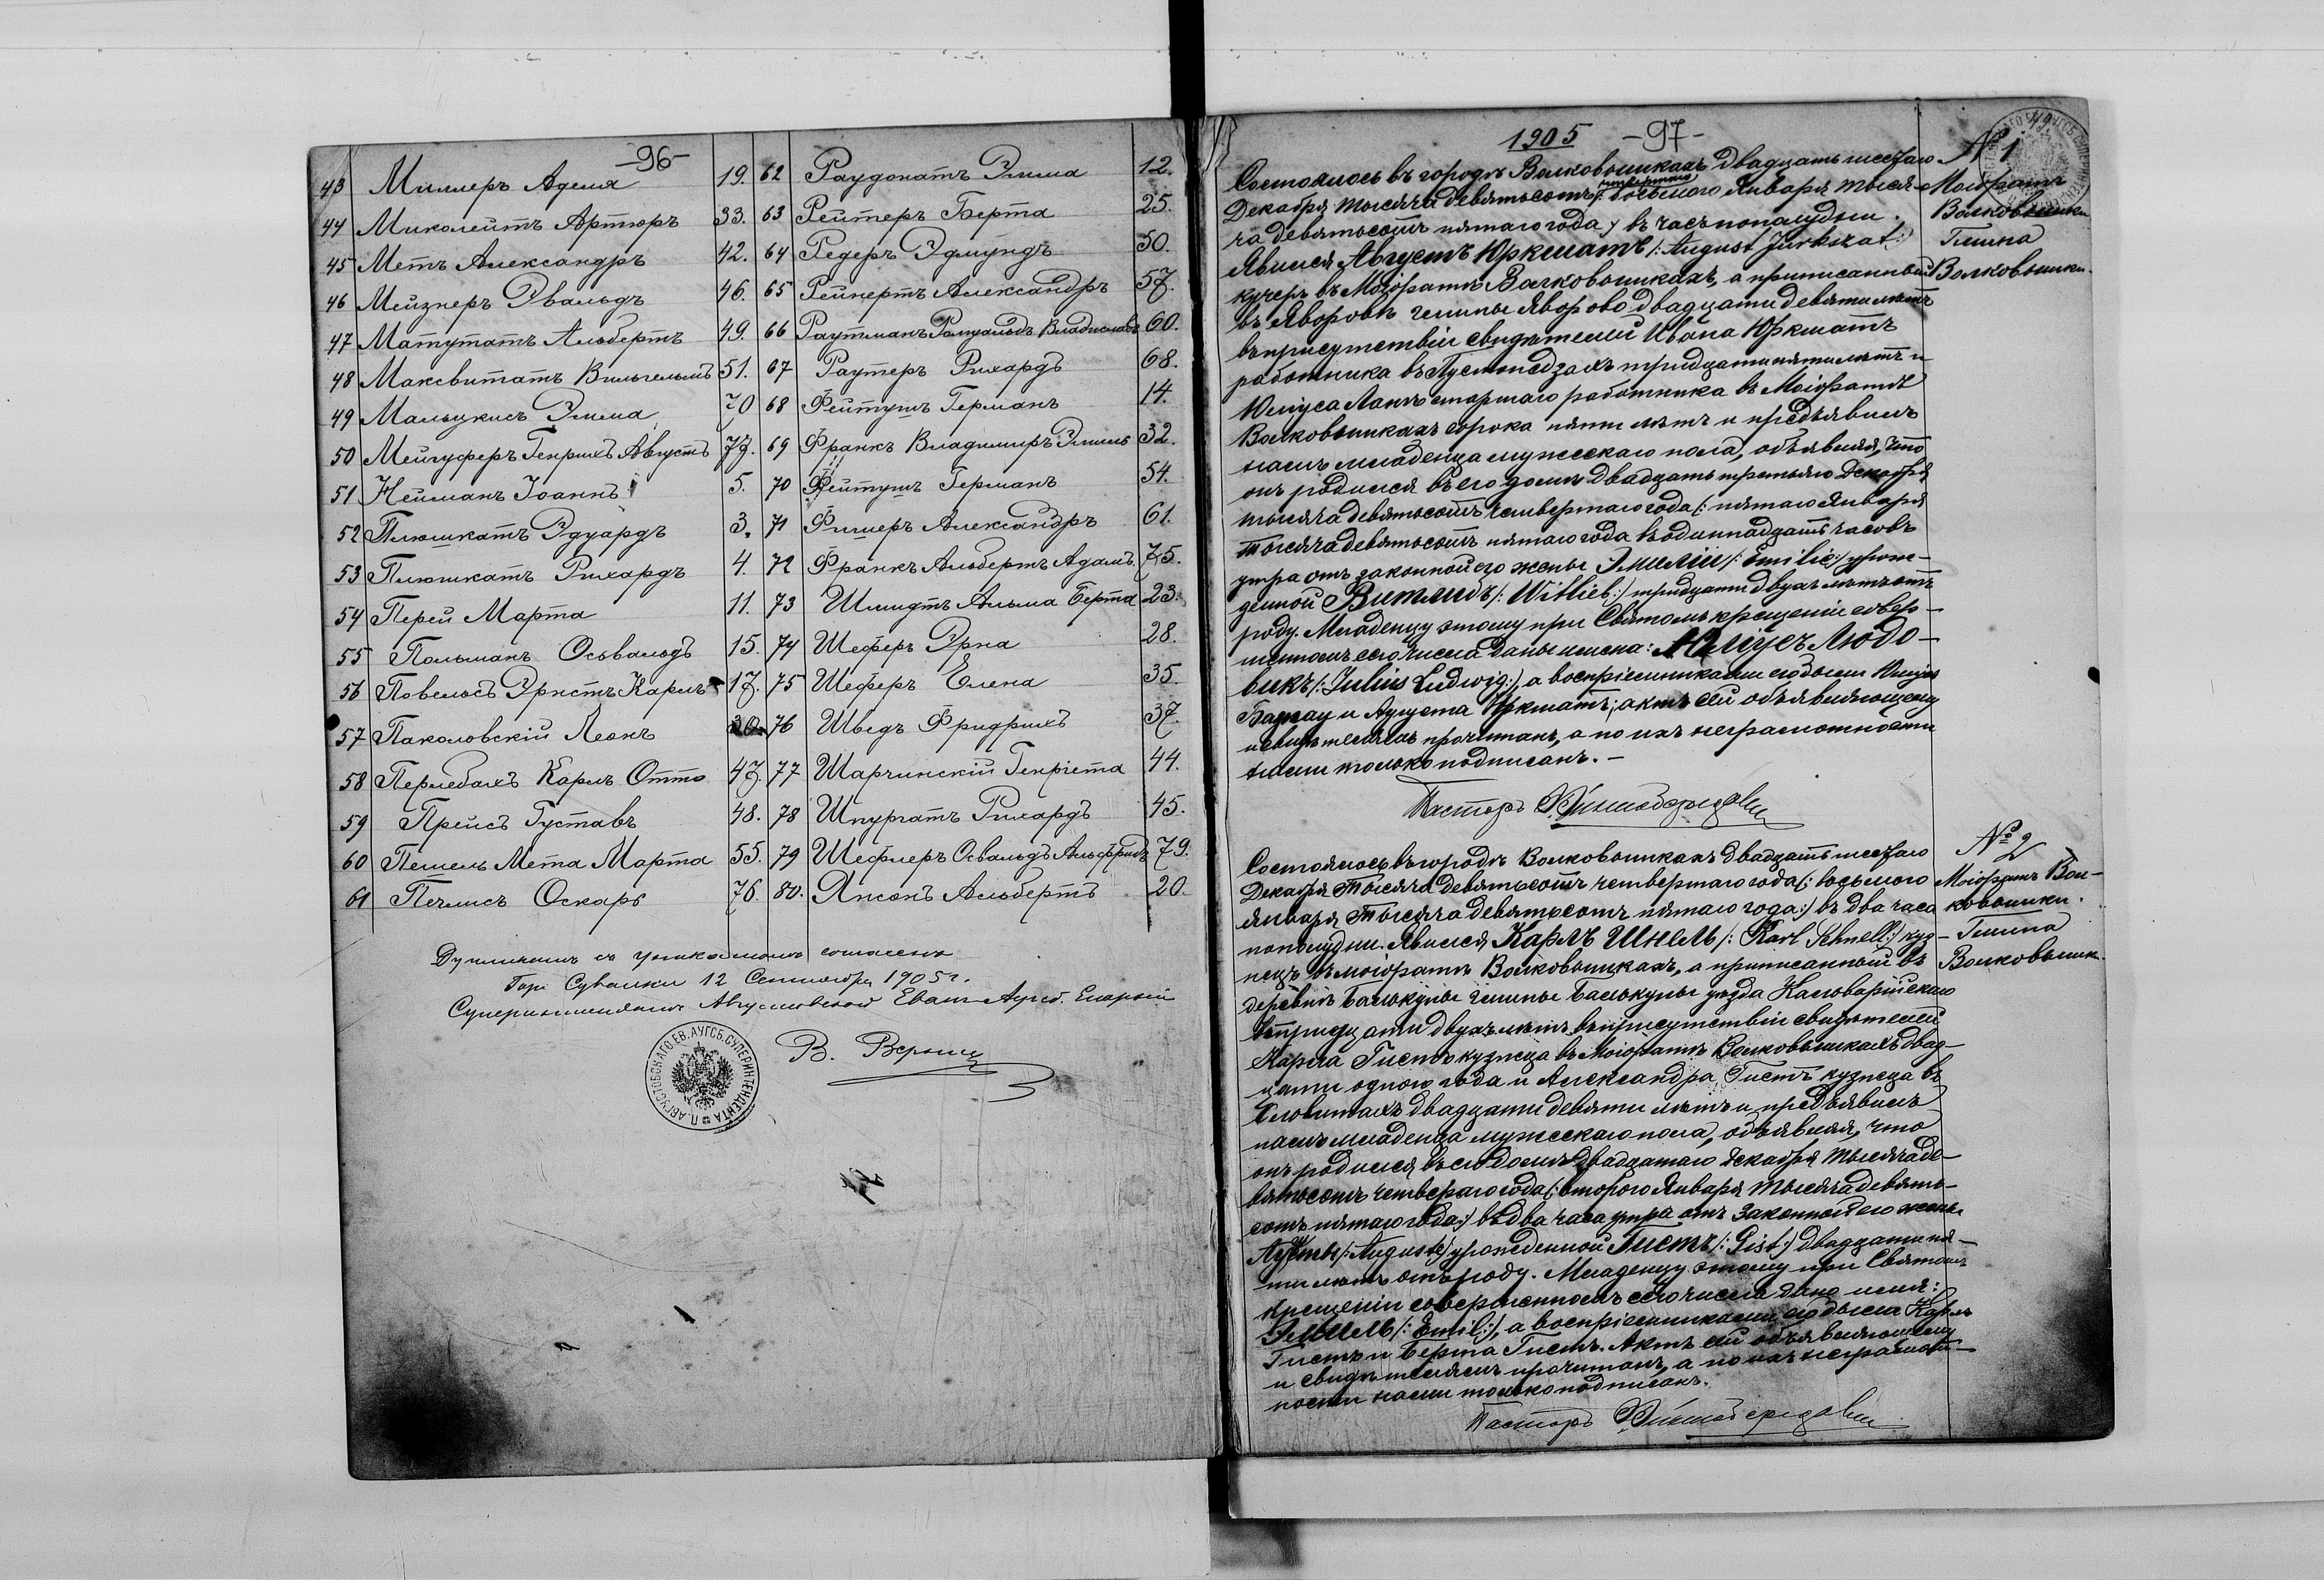 -96-
43 Миллеръ Аделя 19.
44 Миколейтъ Артюръ 33.
45 Метъ Александръ 42.
46 Мейзнеръ Эвальдъ 46.
47 Матутатъ Альбертъ 49.
48 Максвитатъ Вильгельмъ 51.
49 Мальцкисъ Эмма 70
50 Генрихъ Августъ 77.
51 Нейманъ Іоаннъ 5.
52 Плюшкатъ Эдуардъ 3.
53 Плюшкатъ Рихардъ 4.
54 Перей Марта 11.
55 Польманъ Освальдъ 15.
56 Повельсъ Эрнстъ Карлъ 17.
57 Паколовскій Леонъ
58 Перлебахъ Карлъ Отто 47.
59 Прейсъ Густавъ 48.
60 Пешель Мета Марта 55.
61 Печлисъ Оскаръ 76.
62 Раудонатъ Эмма 12.
63 Рейтеръ Берта 25.
64 Редеръ Эдмундъ 50.
65 Рейнертъ Александръ 57.
66 Раутманъ Ромуальдъ Владиславъ 60.
67 Раутеръ Рихардъ 68.
68 Фейтушъ Германъ 14.
69 Франкъ Владимиръ Эмиль 32.
70 Фейтушъ Германъ 54.
71 Фишеръ Александръ 61.
72 Франкъ Альбертъ Адамъ 75.
73 Шмидтъ Альма Берта 23.
74 Шеферъ Эрна 28.
75 Шеферъ Елена 35.
76 Шведъ Фридрихъ 37.
77 Шарчинскій Генріета 44.
78 Шпургатъ Рихардъ 45.
79 Шефлеръ Освальдъ Альфридъ 79.
80. Янсонъ Альбертъ 20.
Дупликатъ съ уникатомъ согласенъ
Гор. Сувалки 12 Сентября 1905 г.
Суперинтендентъ Августовской Еванг. Аугсб. Епархіи
П. АВГУСТОВСКАГО ЕВ. АУГСБ. СУПЕРИНТЕНДЕНТА
1905 -97-
№ 1
Маіоратъ
Волковышки
Гмина
Волковышки.
Состоялось въ городѣ Волковышкахъ двадцать шестаго
Декабря тысяча девятьсотъ четвертаго /: восьмого Января тыся-
ча девятьсотъ пятаго года :/ въ часъ пополудни.
Явился Августъ Юркшатъ /: August Jurkszat :/
кучеръ въ Маіоратѣ Волковышкахъ, а приписанный
въ Яворовѣ гмины Яворово двадцати девяти лѣтъ
въ присутствіи свидѣтелей Ивана Юркшатъ
работника въ Пустопедзахъ тридцати пяти лѣтъ и
Юлiуса Лангъ старшаго работника въ Маіоратѣ
Волковышкахъ сорока пяти лѣтъ и предъявилъ
намъ младенца мужескаго пола, объявляя, что
онъ родился въ его домѣ двадцать третьяго Декабря
тысяча девятьсотъ четвертаго года /: пятаго Января
тысяча девятьсотъ пятаго года въ одиннадцать часовъ
утра отъ законной его жены Эмиліи /: Emilie :/ урож-
денной Витлибъ /: Witlieb :/ тридцати двухъ лѣтъ отъ
роду. Младенцу этому при Святомъ крещеніи совер-
шенномъ сего числа даны имена: Юліусъ Людо-
викъ /: Julius Ludwig :/, а воспріемниками его были Юліусъ
и Аугуста Юркшатъ; актъ сей объявляющему
и свидѣтелямъ прочитанъ, а по ихъ неграмотности
нами только подписанъ. —
Пасторъ
№ 2
Маіоратъ Вол-
ковышки.
Гмина
Волковышки.
Состоялось въ городѣ Волковышкахъ двадцать шестаго
Декабря тысяча девятьсотъ четвертаго года /: восьмого
Января тысяча девятьсотъ пятаго года :/ въ два часа
пополудни. Явился Карлъ Шнель /: Karl Schnell :/ куз-
нецъ въ маіоратѣ Волковышкахъ, а приписанный въ
деревнѣ Балькуны гмины Балькуны уѣзда Кальварійскаго
тридцати двухъ лѣтъ въ присутствіи свидѣтелей
Карла Гистъ кузнеца въ Маіоратѣ Волковышкахъ двад-
цати одного года и Александра Гистъ кузнеца въ
двадцати девяти лѣтъ и предъявилъ
намъ младенца мужескаго пола, объявляя, что
онъ родился въ его домѣ двадцатаго Декабря тысяча де-
вятьсотъ четвертаго года /: второго Января тысяча девять-
сотъ пятаго года :/ въ два часа утра отъ законной его жены
Аугусты /: Auguste :/ урожденной Гистъ /: Gist :/ двадцати пя-
ти лѣтъ отъ роду. Младенцу этому при Святомъ
крещеніи совершенномъ сего числа дано имя:
Эмиль /: Emil :/, а воспріемниками его были Карлъ
Гистъ и Берта Гистъ. Актъ сей объявляющему
и свидѣтелямъ прочитанъ, а по ихъ неграмот-
ности нами только подписанъ.
Пасторъ